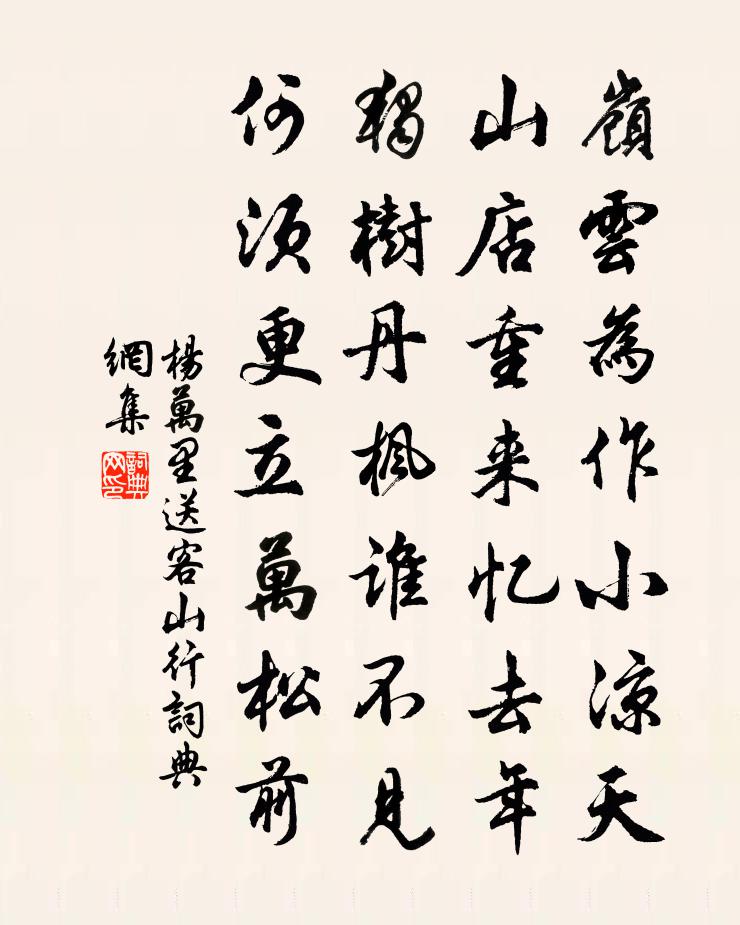 嶺雲為作小涼天
山店重来忆去年
獨樹丹楓誰不見
何須更立萬松前
楊萬里送客山行詞典
網集
詞典
网印